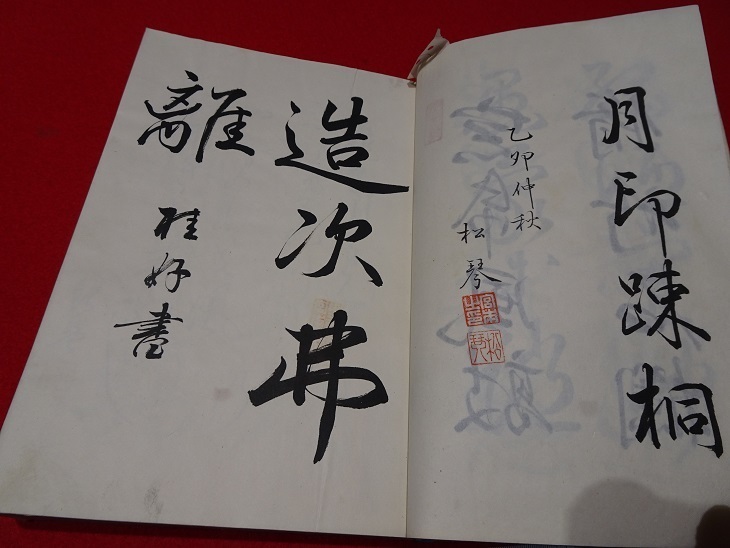 月印踈桐
乙卯仲秋
松琴
造次弗
離
桂好書